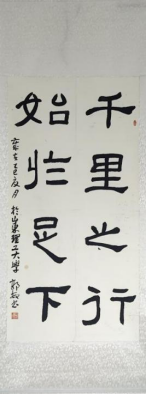 千里之行
始於足下
於山東理工大學